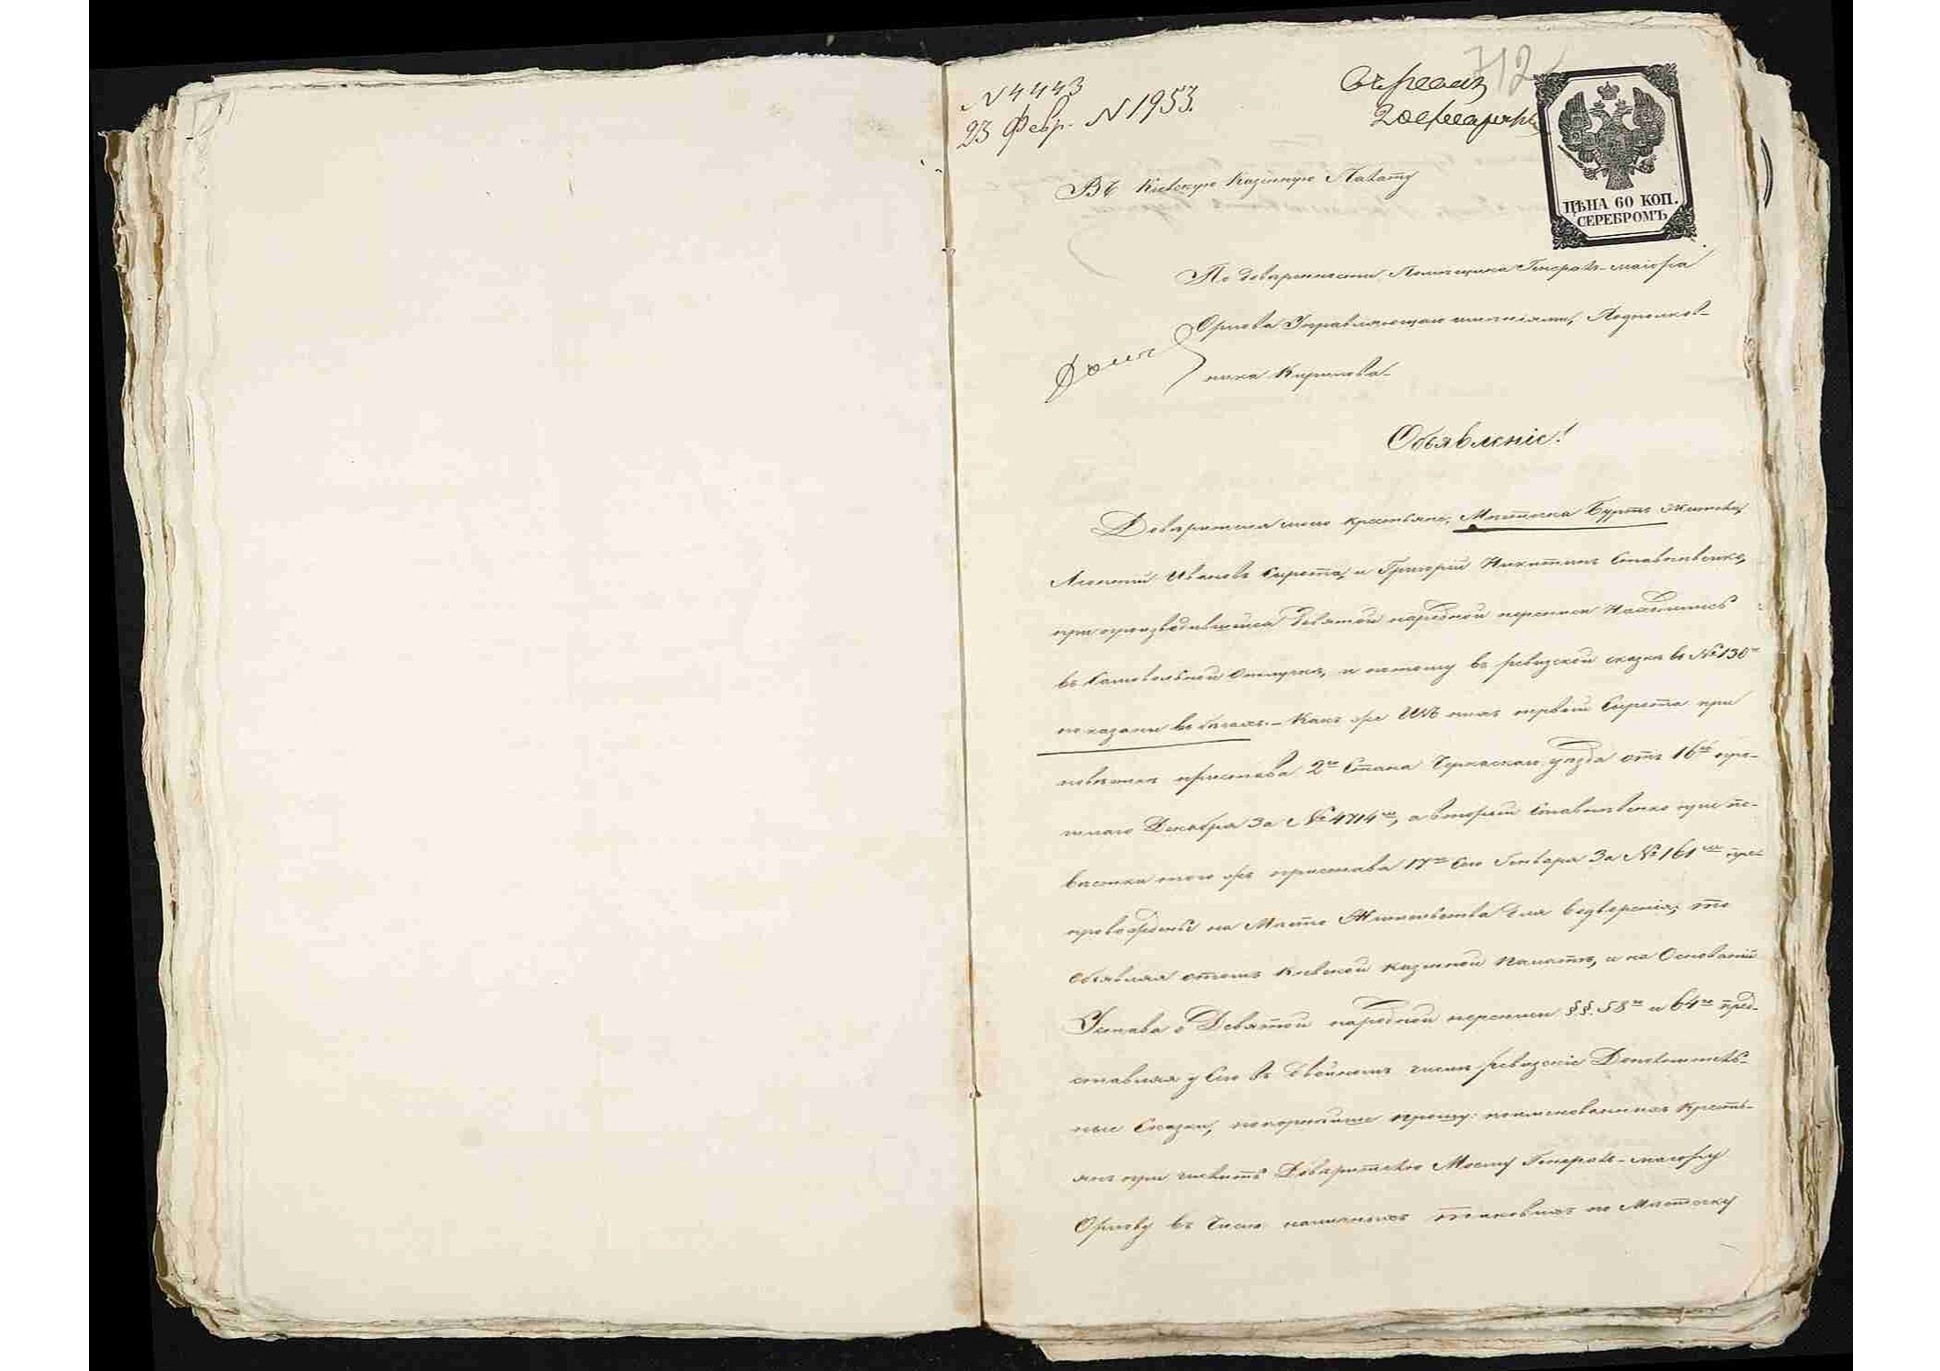 N 4443
23 Февр. N 1953.
712
20 февраля
ЦѢНА 60 КОП.
СЕРЕБРОМЪ
Въ Кіевскую Казенную Палату
По довѣренности Помѣщика Генералъ-маіора
Орлова Управляющаго имѣніями, Подполков-
ника Кирилова
Объявленіе!
Довѣрителя моего крестьяне, Мѣстечка Бурты Жители,
Леонтій Ивановъ Сирота, и Григорій Никитинъ
при производившейся девятой народной переписи находились
въ самовольной отлучкѣ, и потому въ ревизской сказкѣ въ № 130м
показаны въ бѣгахъ. – Какъ же изъ нихъ первый Сирота при
повѣсткѣ пристава 2го Стана Черкаскаго уѣзда отъ 16го про-
шлаго Декабря за № 4714м, а вторый при по-
вѣстки того же пристава 17го сего Генваря за № 161м пре-
провождены на Мѣсто Жительства для водворенія, то
объявляя о томъ Кіевской казенной Палатѣ, и на Основаніи
Устава о Девятой народной переписи §§. 58го и 64го пред-
ставляя у сего въ двойномъ числѣ ревизскіе Дополнитель-
ные Сказки, покорнѣйше прошу: поименованныхъ Кресть-
янъ причислить Довѣрителю Моему Генералъ-маіору
Орлову въ число наличныхъ таковыхъ по Мѣстечку